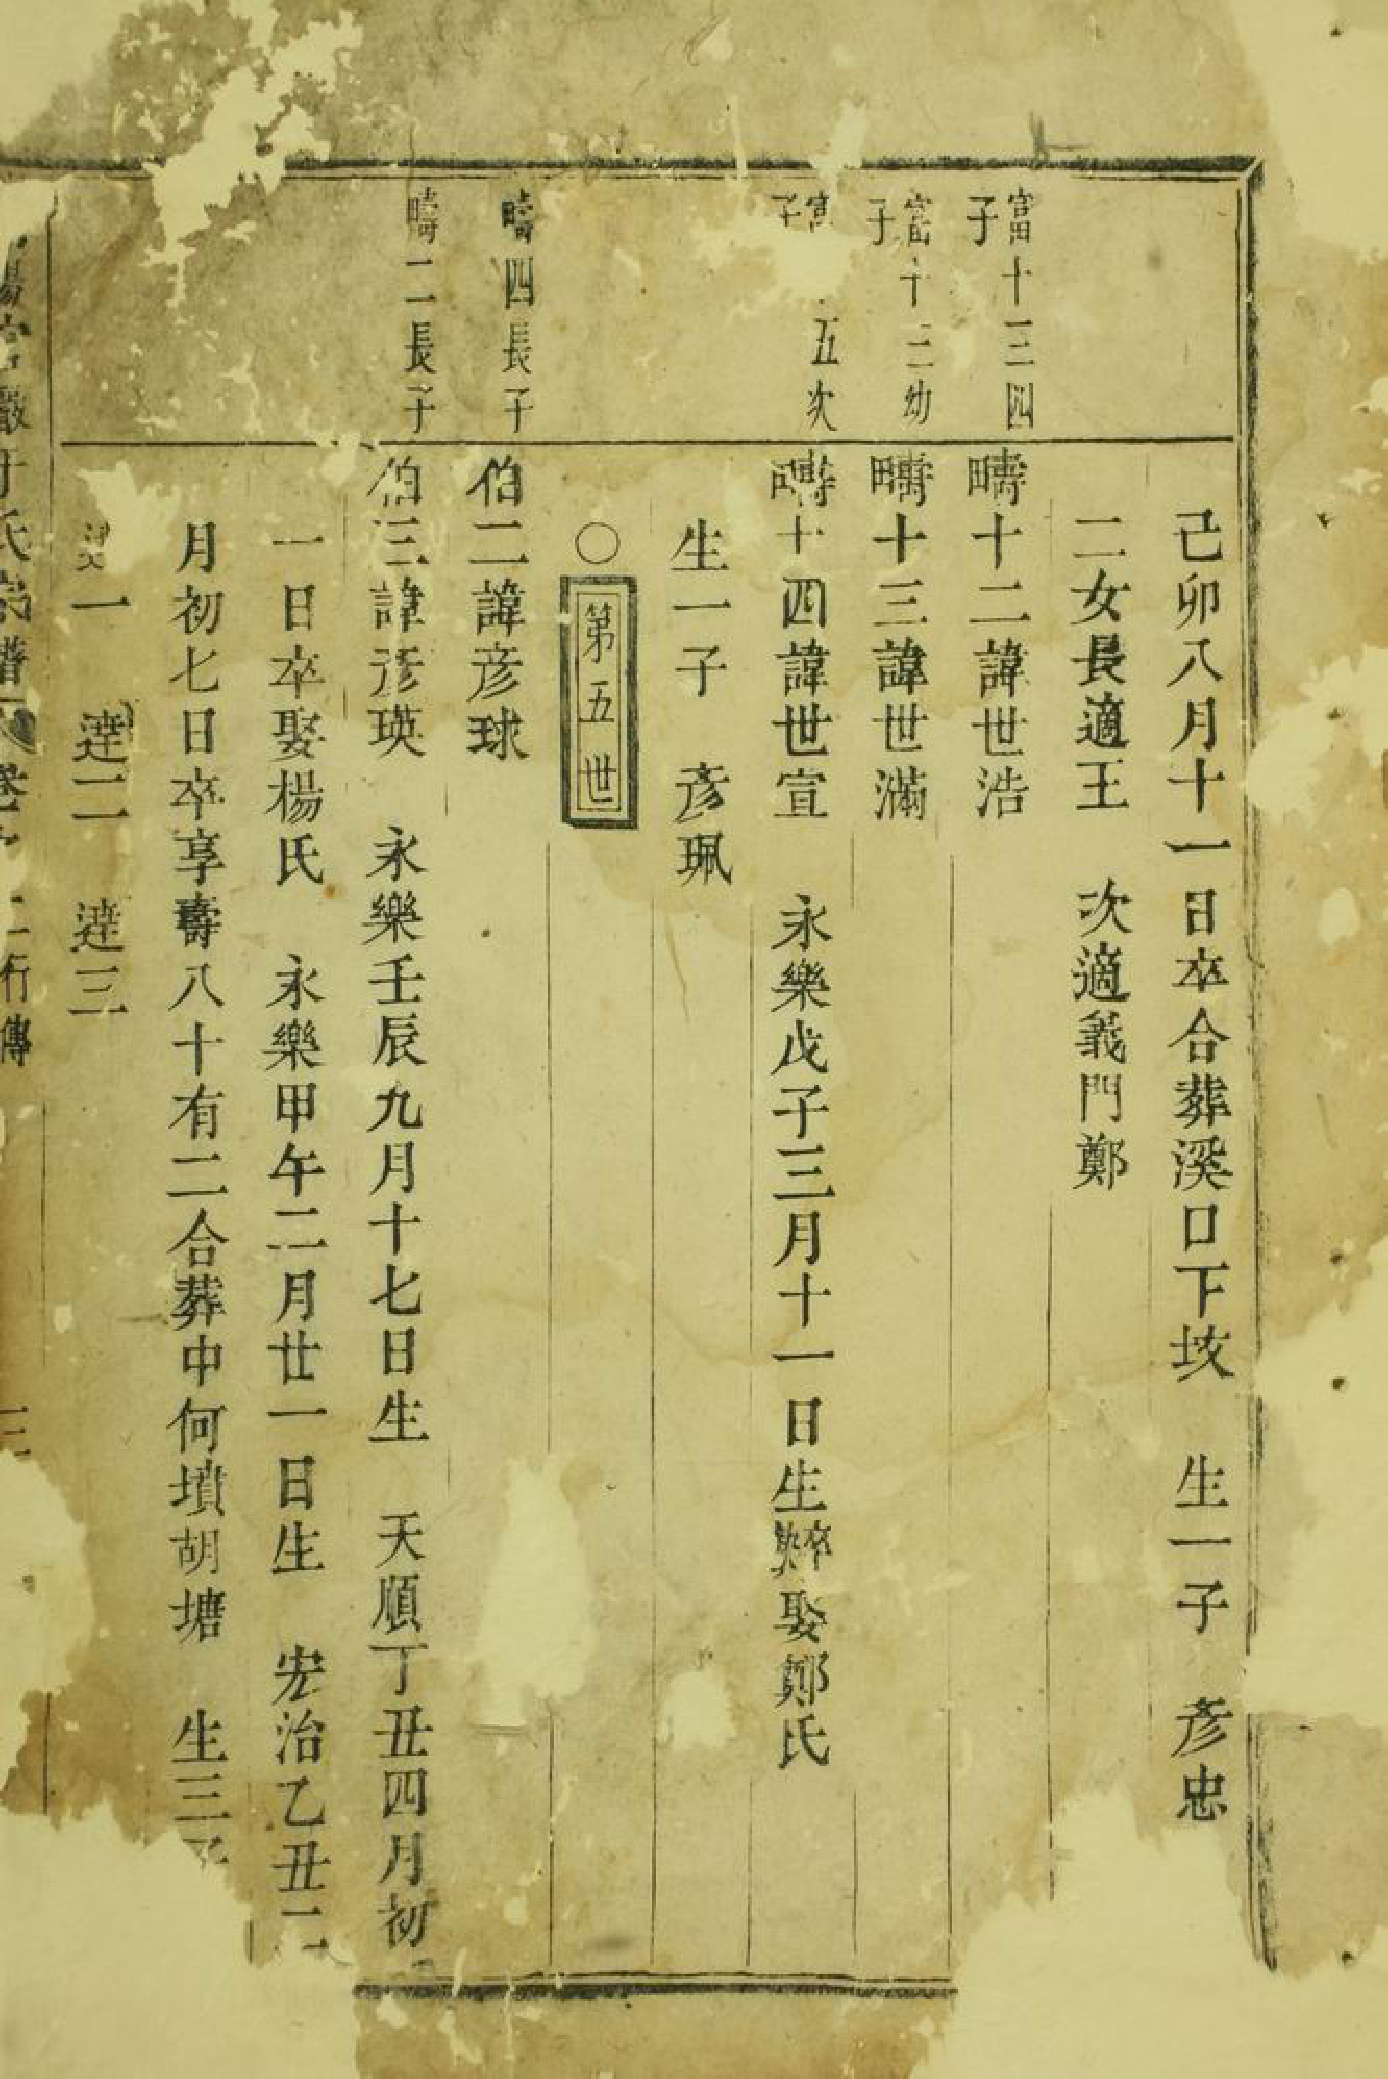 己卯八月十一日卒合葬溪口下坟　生一子　彥忠
二女長適王　次適義門鄭
富十三四子
疇十二諱世浩
富十三幼子
疇十三諱世滿
富　五次子
疇十四諱世宣　永樂戊子三月十一日生卒娶鄭氏
生一子　彥珮
〇第五世
疇四長子
伯二諱彥球
疇二長子
伯三諱彥瑛　永樂壬辰九月十七日生　天順丁丑四月初
一日卒娶楊氏　永樂甲午二月廿一日生　宏治乙丑二
月初七日卒享壽八十有二合葬中何墳胡塘　生三子
一　達二　達三
氏宗譜　行傳